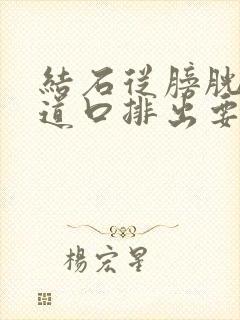 結石從膀胱
道口排出要
楊宏星